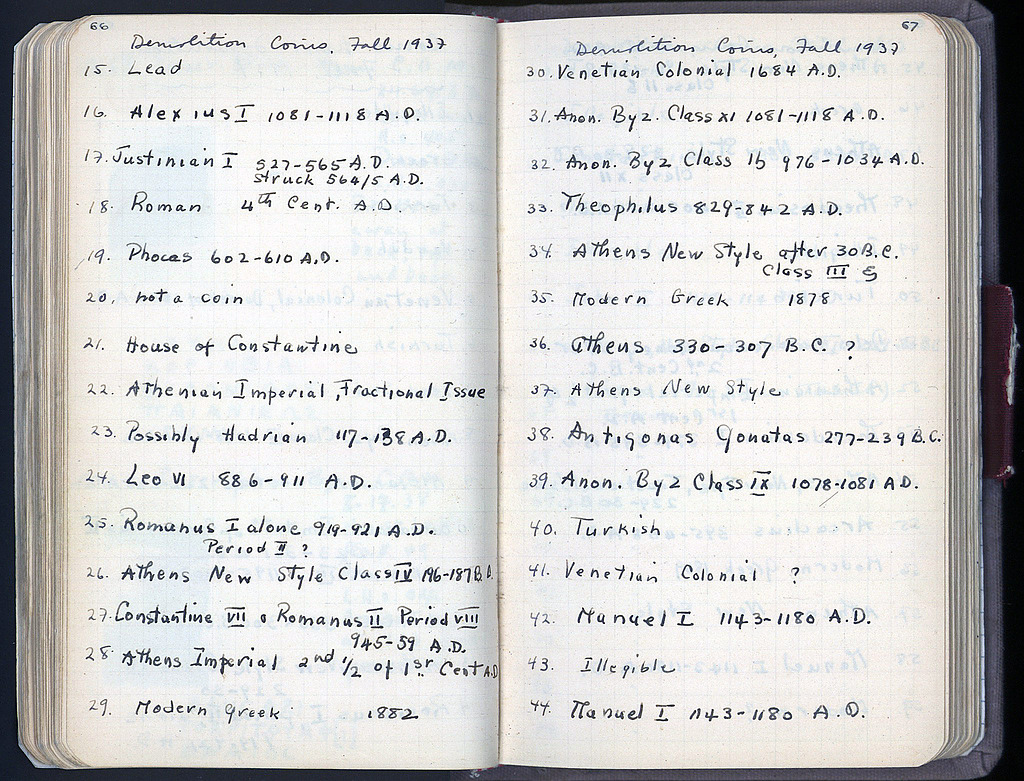 66
Demolition Coins, Fall 1937
15. Lead
16. Alexius I 1081-1118 A.D.
17. Justinian I 527-565 A.D.
struck 564/5 A.D.
18. Roman 4th Cent. A.D.
19. Phocas 602-610 A.D.
20. not a coin
21. House of Constantine
22. Athenian Imperial, Fractional Issue
23. Possibly Hadrian 117-138 A.D.
24. Leo VI 886-911 A.D.
25. Romanus I alone 919-921 A.D.
Period II ?
26. Athens New Style Class IV 196-187 B.C.
27. Constantine VII & Romanus II Period VIII
945-59 A.D.
28. Athens Imperial 2nd 1/2 of 1st Cent A.D.
29. Modern Greek 1882
67
Demolition Coins, Fall 1937
30. Venetian Colonial 1684 A.D.
31. Anon. Byz. Class XI 1081-1118 A.D.
32. Anon. Byz Class Ib 976-1034 A.D.
33. Theophilus 829-842 A.D.
34. Athens New Style after 30 B.C.
Class III
35. Modern Greek 1878
36. Athens 330-307 B.C. ?
37. Athens New Style
38. Antigonas Gonatas 277-239 B.C.
39. Anon. Byz Class IX 1078-1081 A.D.
40. Turkish
41. Venetian Colonial ?
42. Manuel I 1143-1180 A.D.
43. Illegible
44. Manuel I 1143-1180 A.D.